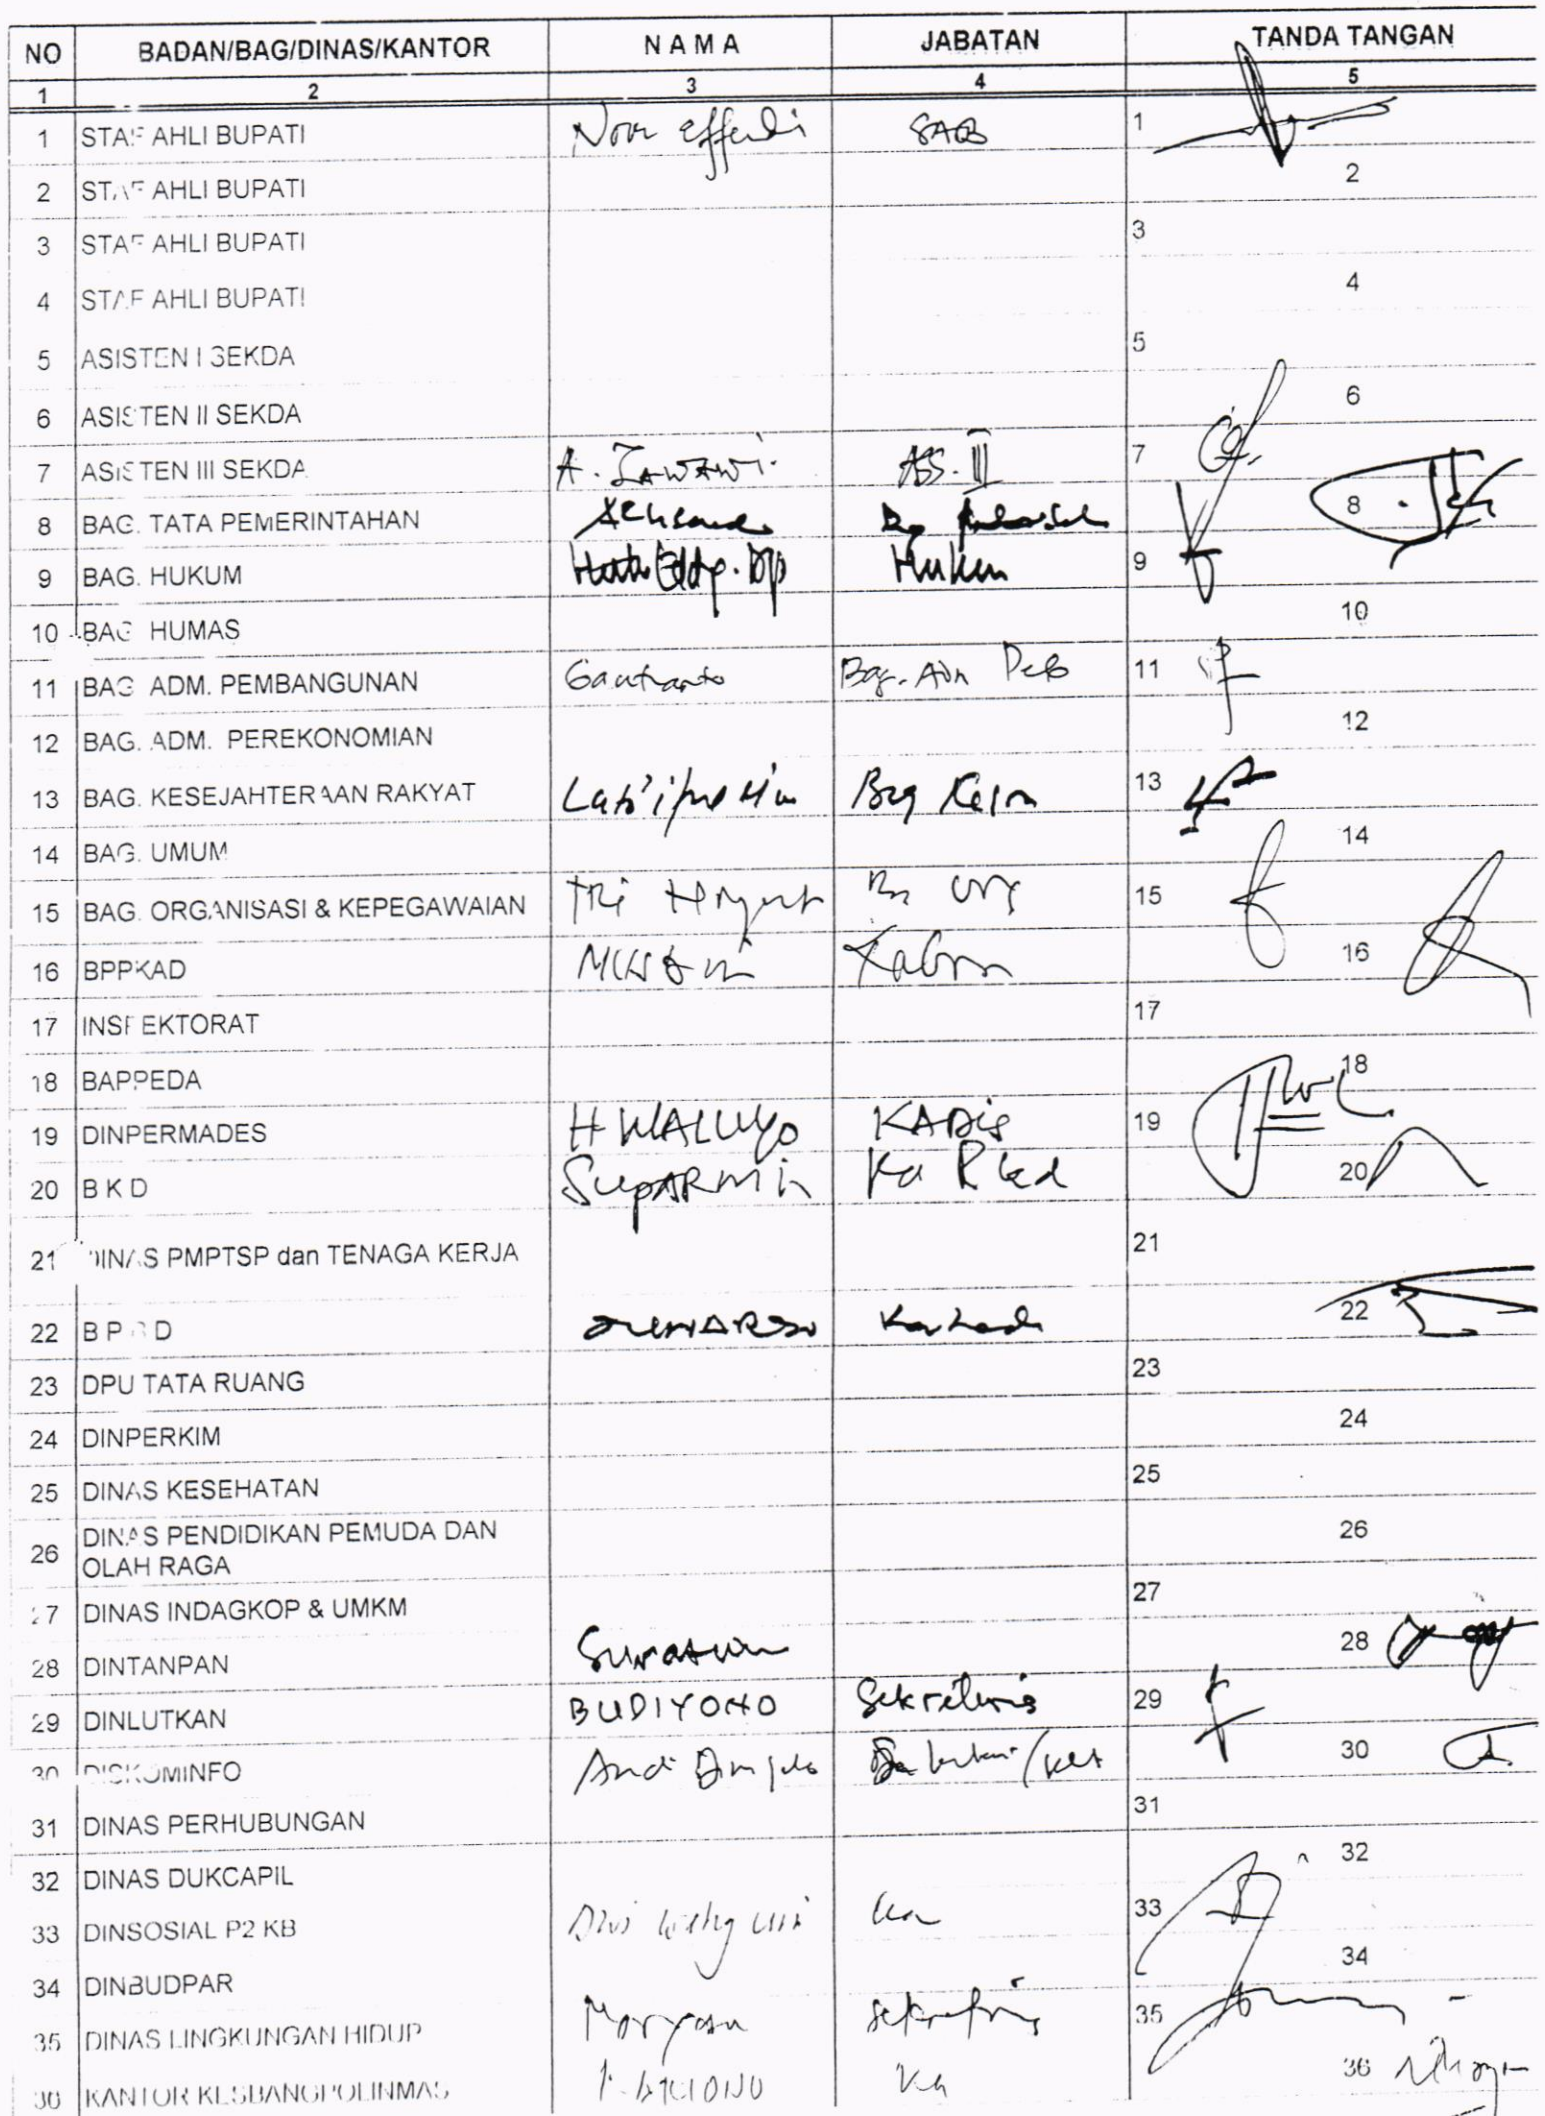 NO BADAN/BAG/DINAS/KANTOR N A M A JABATAN TANDA TANGAN
1 2 3 4 5
1 STAF AHLI BUPATI Noor Effendi SAB 1
2 STAF AHLI BUPATI 2
3 STAF AHLI BUPATI 3
4 STAF AHLI BUPATI 4
5 ASISTEN I SEKDA 5
6 ASISTEN II SEKDA 6
7 ASISTEN III SEKDA A. ZAWAWI. ASS. III 7
8 BAG. TATA PEMERINTAHAN 8
9 BAG. HUKUM Hukum 9
10 BAG HUMAS 10
11 BAG ADM. PEMBANGUNAN Bag. Adm 11
12 BAG. ADM. PEREKONOMIAN 12
13 BAG. KESEJAHTERAAN RAKYAT Bag Kesra 13
14 BAG. UMUM 14
15 BAG. ORGANISASI & KEPEGAWAIAN TRi 15
16 BPPKAD 16
17 INSPEKTORAT 17
18 BAPPEDA 18
19 DINPERMADES H WALUYO KADIS 19
20 B K D SUPARMIN Ka 20
21 DINAS PMPTSP dan TENAGA KERJA 21
22 B P B D 22
23 DPU TATA RUANG 23
24 DINPERKIM 24
25 DINAS KESEHATAN 25
26 DINAS PENDIDIKAN PEMUDA DAN 26
OLAH RAGA
27 DINAS INDAGKOP & UMKM 27
28 DINTANPAN 28
29 DINLUTKAN BUDIYONO Sekretaris 29
30 DISKOMINFO Andi 30
31 DINAS PERHUBUNGAN 31
32 DINAS DUKCAPIL 32
33 DINSOSIAL P2 KB Dwi Ka 33
34 DINBUDPAR 34
35 DINAS LINGKUNGAN HIDUP Maryono sekretaris 35
36 KANTOR KESBANGPOLINMAS Ka 36